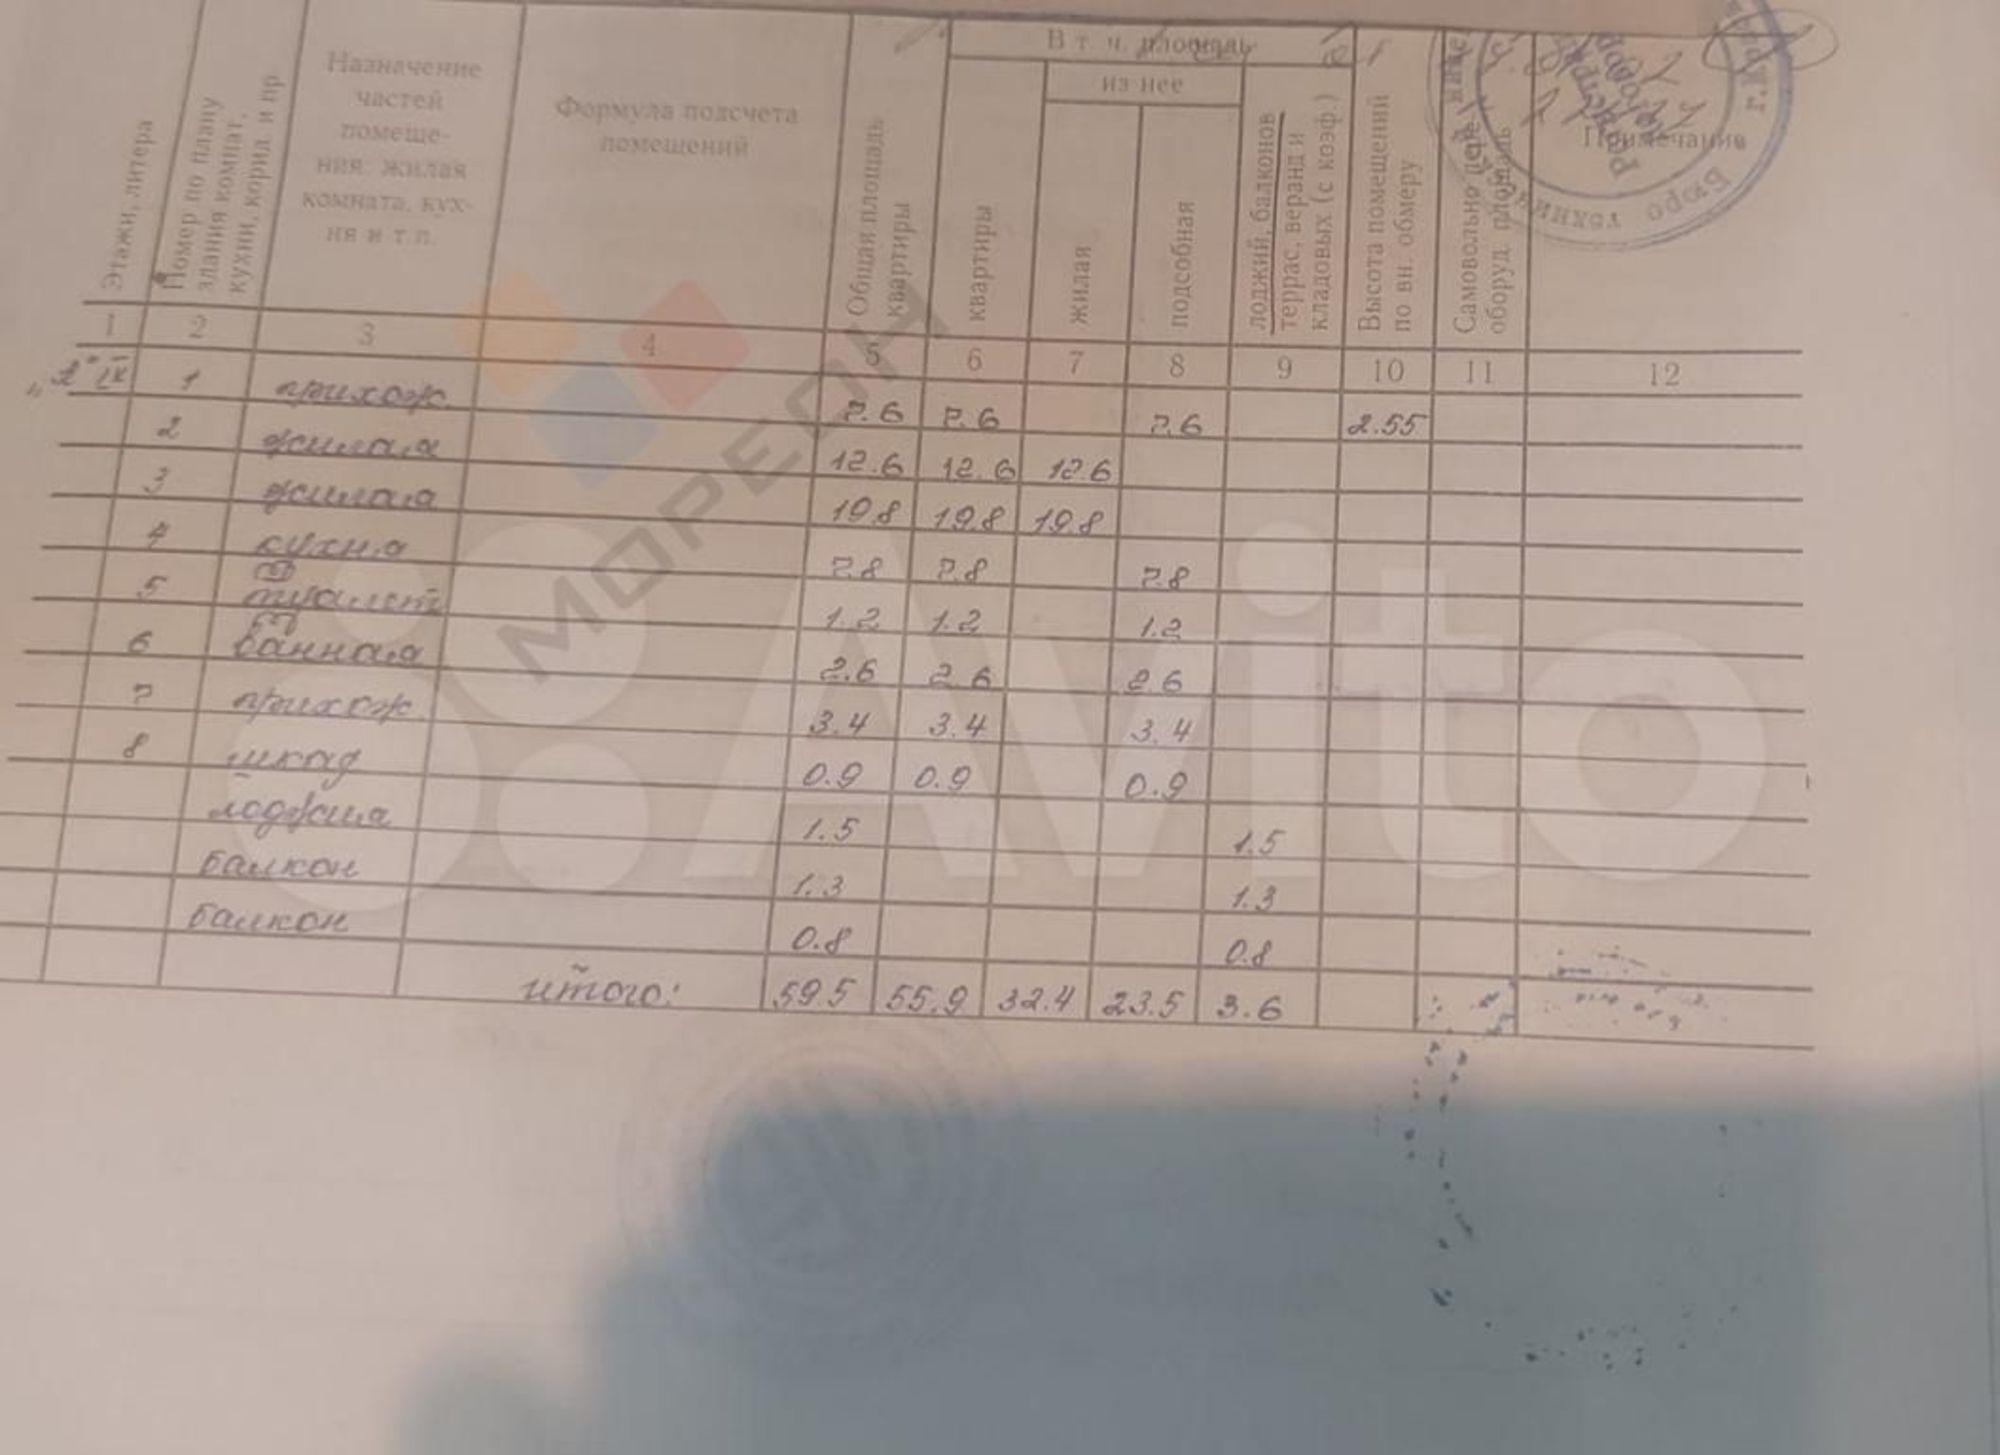 Этажи, литера
Номер по плану
здания комнат,
кухни, корид. и пр
Назначение
частей
помеще-
ния: жилая
комната, кух-
ня и т.п.
Формула подсчета
помещений
Общая площадь
квартиры
В т. ч. площадь
квартиры
из нее
жилая
подсобная
лоджий, балконов
террас, веранд и
кладовых (с коэф.)
Высота помещений
по вн. обмеру
Самовольно
оборуд. площадь
Примечание
Бюро
1 2 3 4 5 6 7 8 9 10 11 12
IX 1 прихож. 7.6 7.6 7.6 2.55
2 жилая 12.6 12.6 12.6
3 жилая 19.8 19.8 19.8
4 кухня 7.8 7.8 7.8
5 туалет 1.2 1.2 1.2
6 ванная 2.6 2.6 2.6
7 прихож. 3.4 3.4 3.4
8 шкаф 0.9 0.9 0.9
лоджия 1.5 1.5
балкон 1.3 1.3
балкон 0.8 0.8
итого: 59.5 55.9 32.4 23.5 3.6
МОРЕОН
Avito